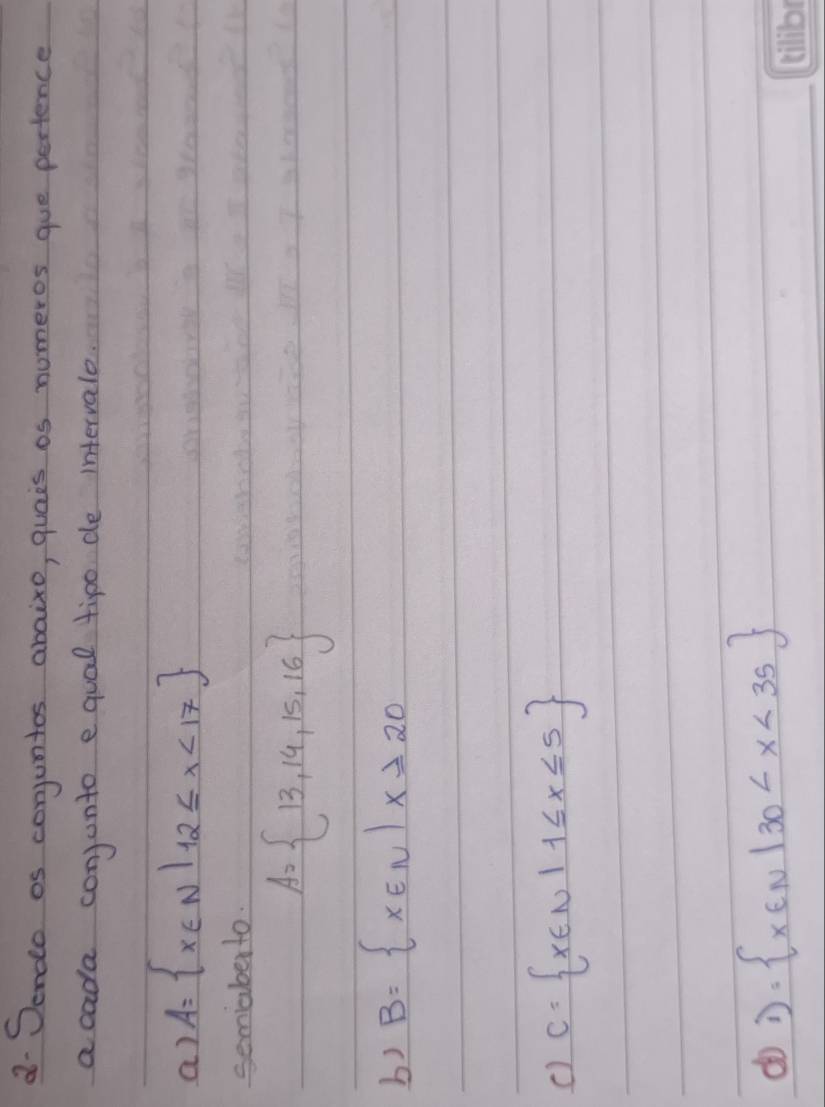 2- Sendo os conjuntos abaixo, quais os numeros que pertence
a cada conjunto e qual tipo de intervalo.
a) A = {x ∈ N | 12 ≤ x < 17}
semiaberto.
A = {13, 14, 15, 16}
b) B = {x ∈ N | x ≥ 20
c) C = {x ∈ N | 1 ≤ x ≤ 5}
d) D = {x ∈ N | 30 < x < 35}
tilibr